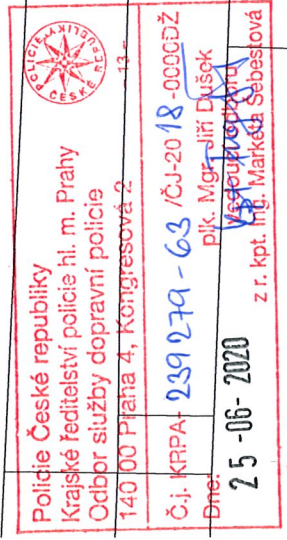 POLICIE ČESKÉ REPUBLIKY
Policie České republiky
Krajské ředitelství policie hl. m. Prahy
Odbor služby dopravní policie
140 00 Praha 4, Kongresová 2
- 13 -
Č.j. KRPA- 239279-63 /ČJ-2018-0000DŽ
plk. Mgr. Jiří Dušek
Dne: Vedoucí odboru
25 -06- 2020
z r. kpt. Ing. Markéta Šebestová